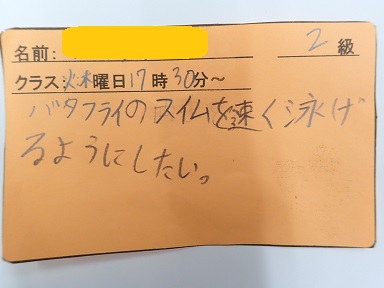 名前: 2 級
クラス:火木曜日17時30分～
バタフライのスイムを速く泳げ
るようにしたい。